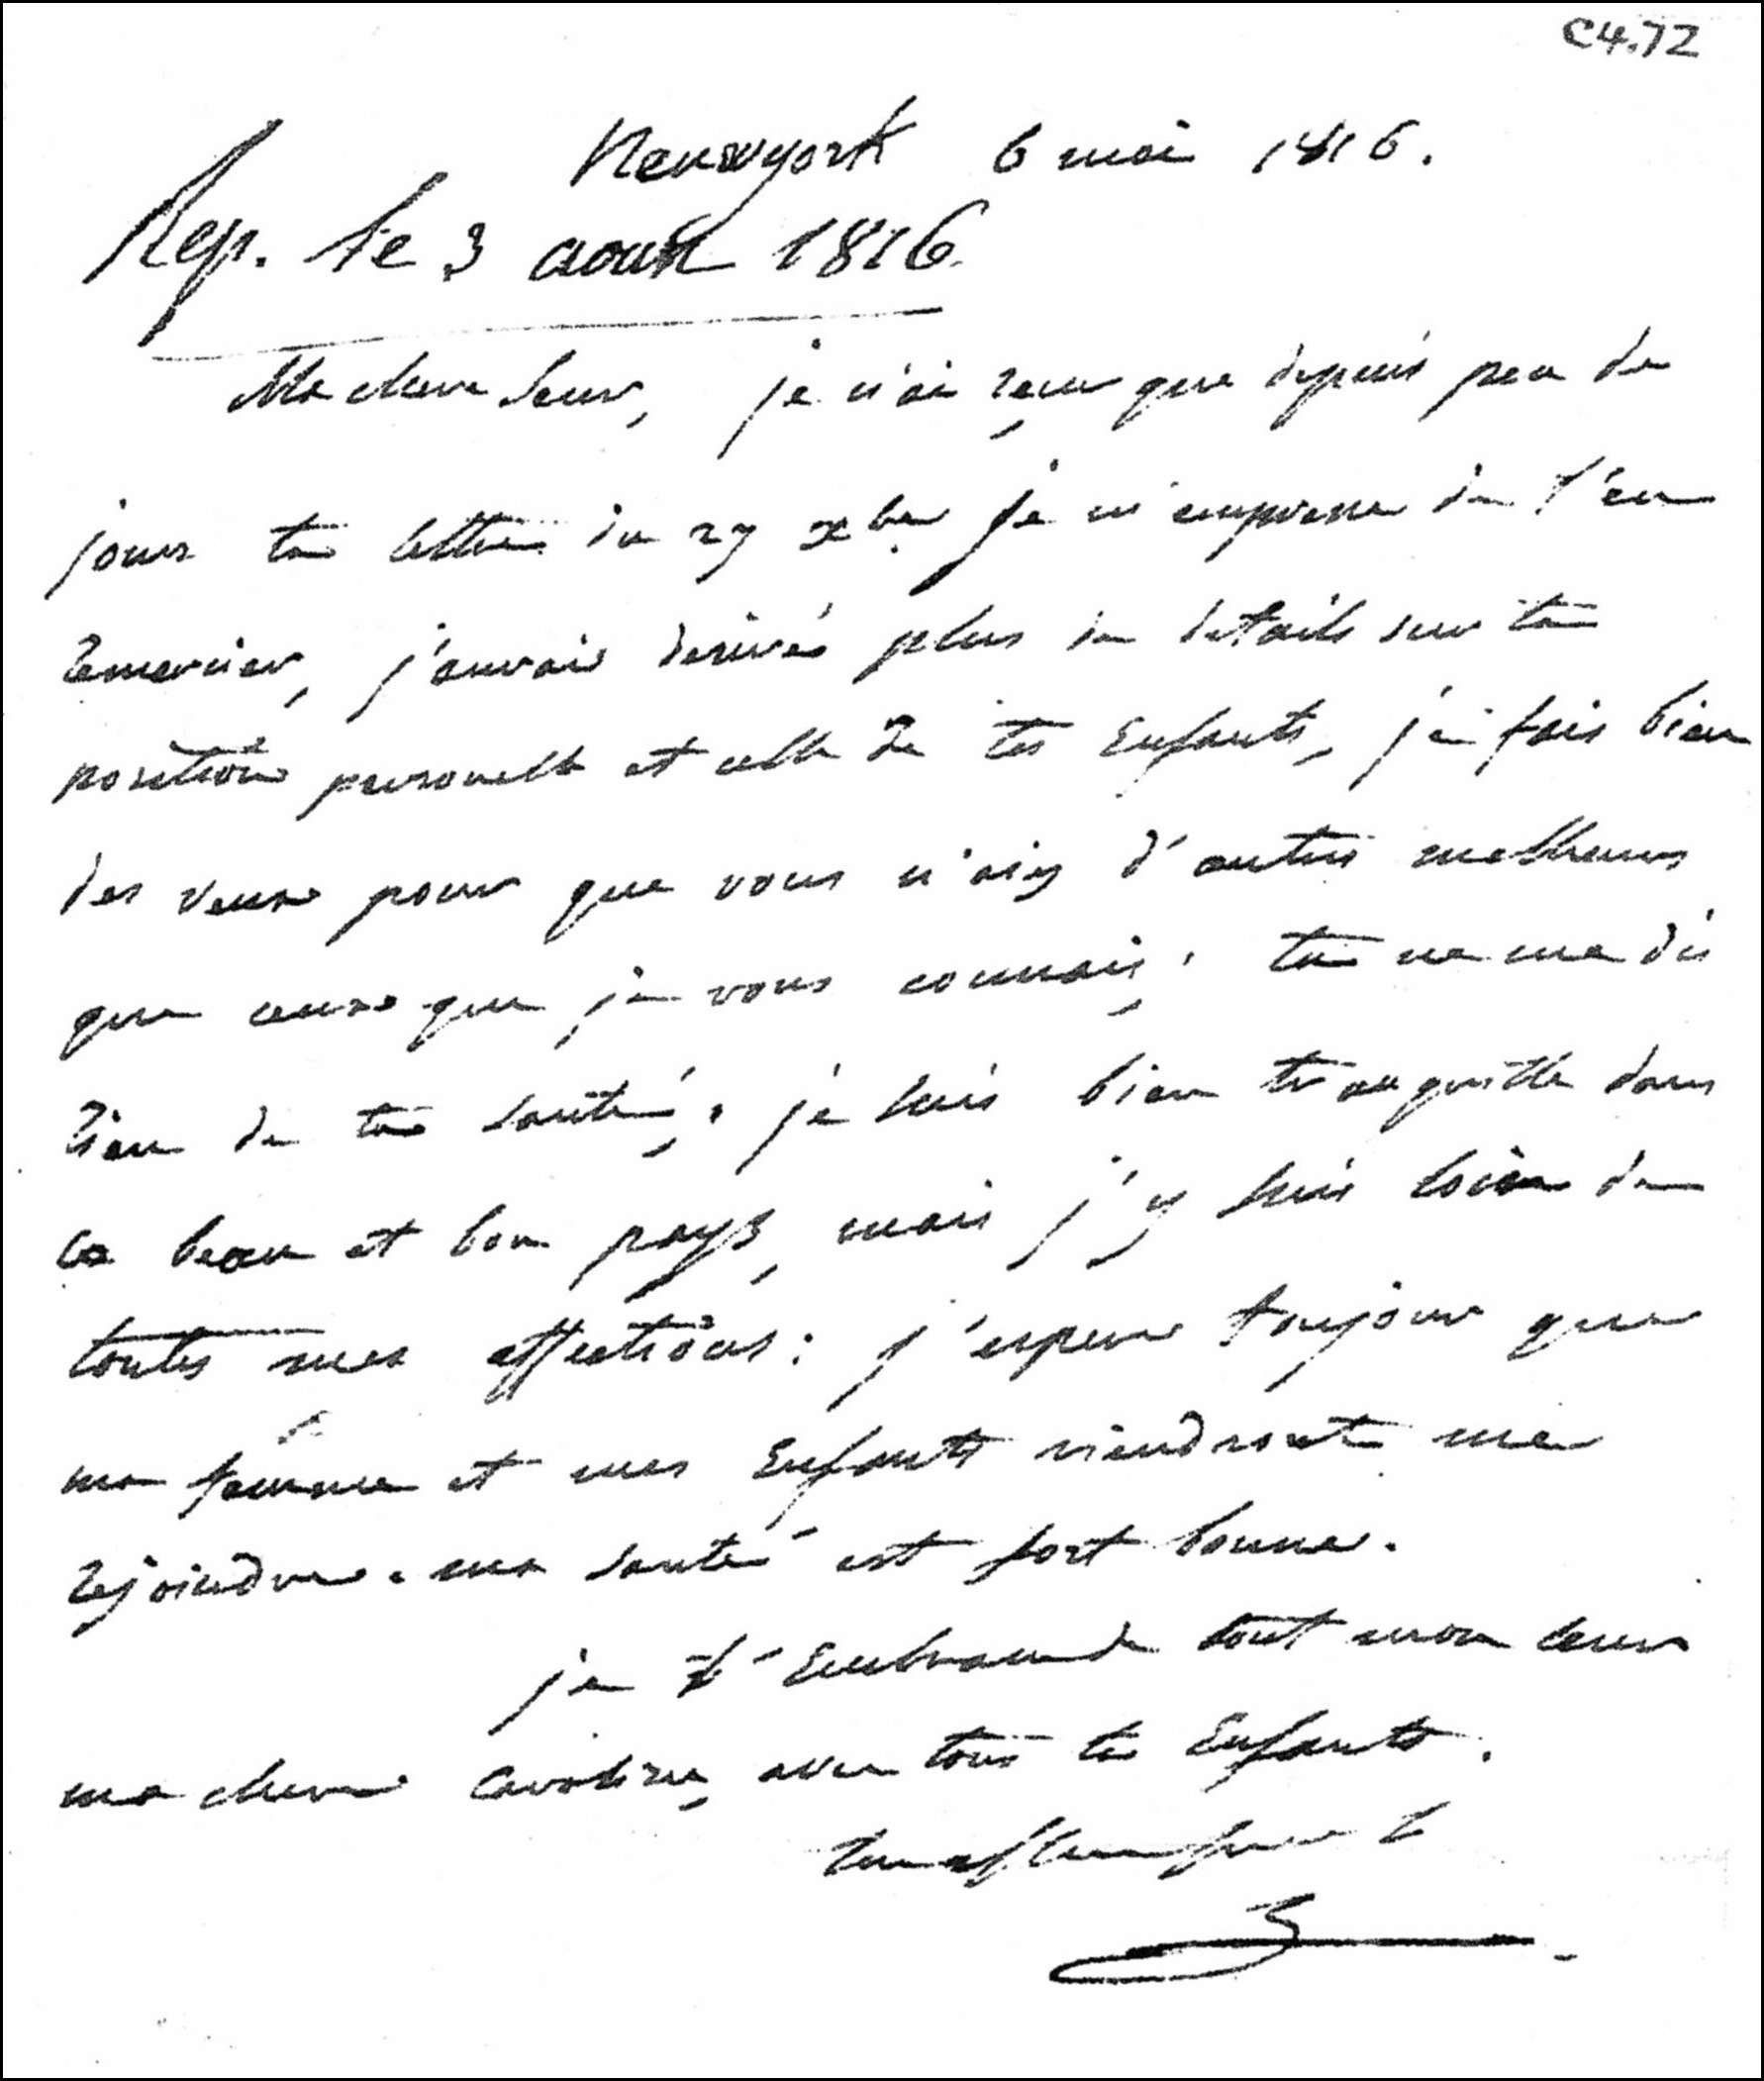 C4.72
Newyork 6 mai 1816.
Rep. le 3 aout 1816
Ma chere Seur, je n'ai reçu que depuis peu de
jours ta lettre du 27 xbre je m'empresse de t'en
remercier, j'aurais desiré plus de details sur ta
position personelle et celle de tes Enfants, je fais bien
des veux pour que vous n'aiez d'autres malheurs
que ceux que je vous connais, ta ne me dis
rien de ta santé, je suis bien tranquille dans
ce beau et bon pays, mais j'y suis loin de
toutes mes affections: j'espere toujour que
ma femme et mes Enfants viendront me
rejoindre. ma santé est fort bonne.
je t'Embrasse de tout mon ceur
ma chere Caroline, avec tous tes Enfants.